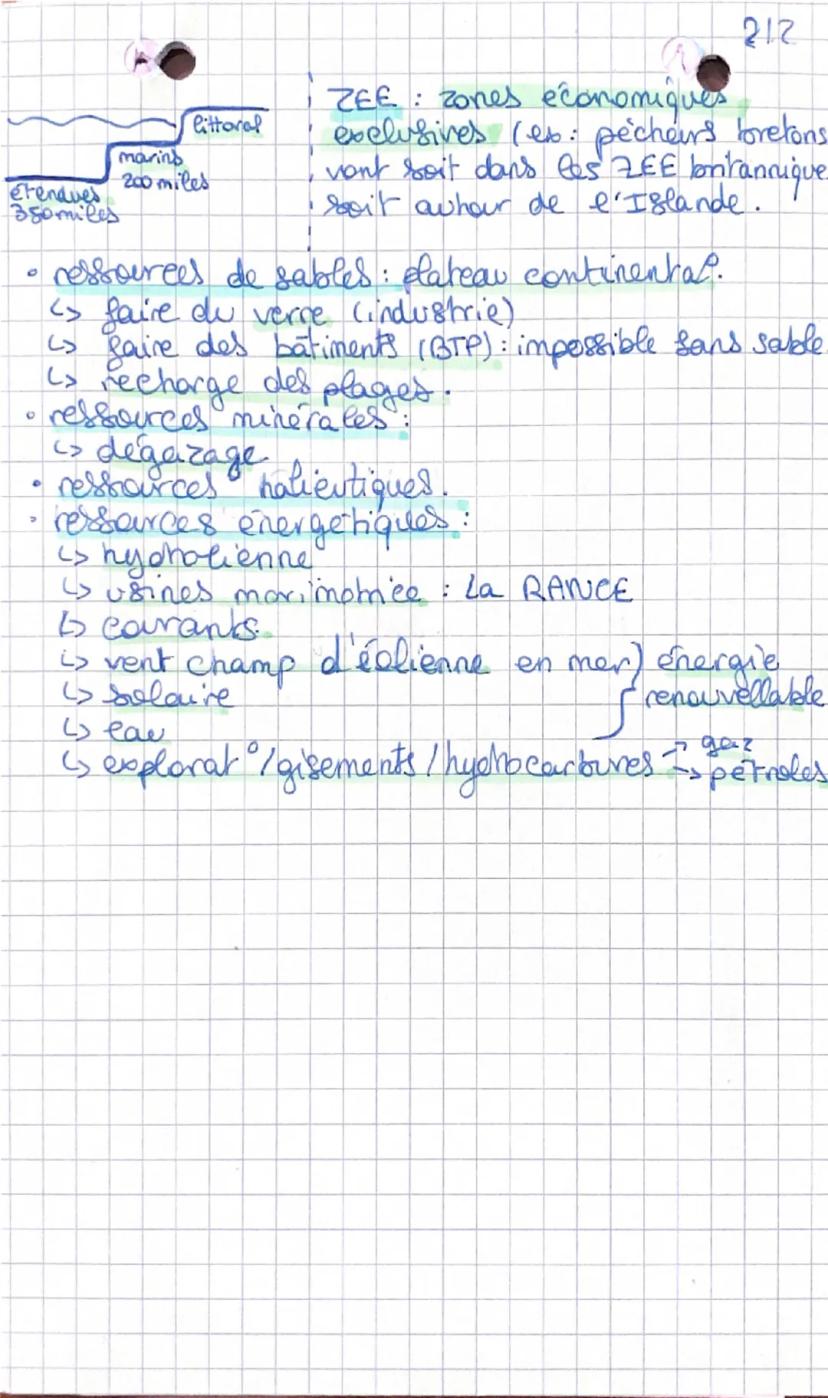 2/2
littoral
marins
200 miles
étendues
350 miles
ZEE : zones économiques
exclusives (ex : pêcheurs bretons
vont soit dans les ZEE britannique
soit autour de l'Islande.
• ressources de sables : plateau continental.
↳ faire du verre (industrie)
↳ faire des bâtiments (BTP) : impossible sans sable
↳ recharge des plages.
• ressources minérales :
↳ dégazage
• ressources halieutiques.
• ressources énergétiques :
↳ hydrolienne
↳ usines marimotrice : La RANCE
↳ courants.
↳ vent champ d'éolienne en mer } énergie
↳ solaire renouvellable
↳ eau
↳ explorat° / gisements / hydrocarbures → gaz
→ pétroles